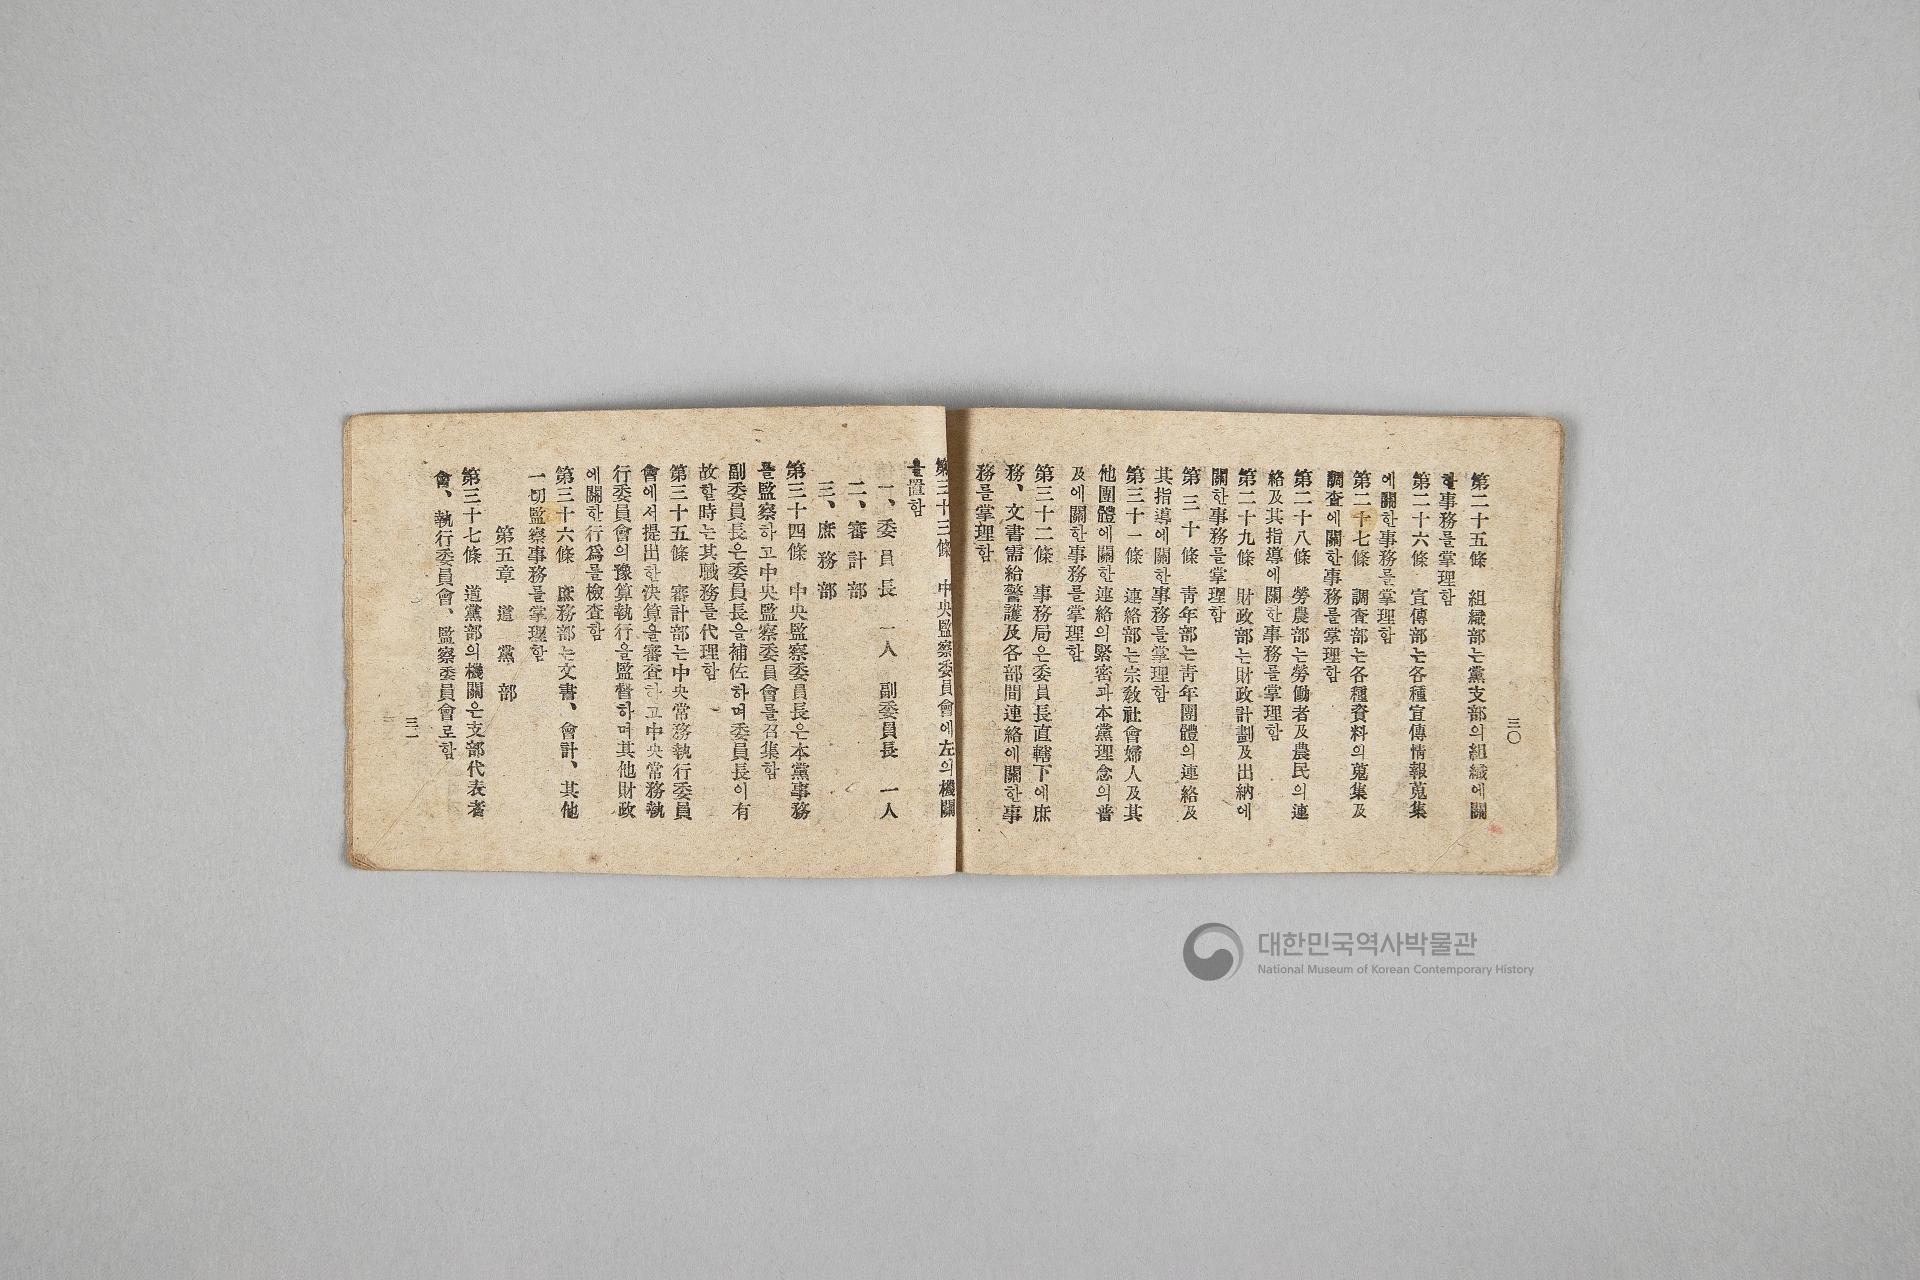 三〇
第二十五條 組織部는黨支部의組織에關
한事務를掌理함
第二十六條 宣傳部는各種宣傳情報蒐集
에關한事務를掌理함
第二十七條 調査部는各種資料의蒐集及
調査에關한事務를掌理함
第二十八條 勞農部는勞働者及農民의連
絡及其指導에關한事務를掌理함
第二十九條 財政部는財政計劃及出納에
關한事務를掌理함
第三十條 靑年部는靑年團體의連絡及
其指導에關한事務를掌理함
第三十一條 連絡部는宗敎社會婦人及其
他團體에關한連絡의緊密과本黨理念의普
及에關한事務를掌理함
第三十二條 事務局은委員長直轄下에庶
務、文書需給警護及各部間連絡에關한事
務를掌理함
第三十三條 中央監察委員會에左의機關
을置함
一、委員長 一人 副委員長 一人
二、審計部
三、庶務部
第三十四條 中央監察委員長은本黨事務
를監察하고中央監察委員會를召集함
副委員長은委員長을補佐하며委員長이有
故할時는其職務를代理함
第三十五條 審計部는中央常務執行委員
會에서提出한決算을審査하고中央常務執
行委員會의豫算執行을監督하며其他財政
에關한行爲를檢査함
第三十六條 庶務部는文書、會計、其他
一切監察事務를掌理함
第五章 道黨部
第三十七條 道黨部의機關은支部代表者
會、執行委員會、監察委員會로함
三一
대한민국역사박물관
National Museum of Korean Contemporary History